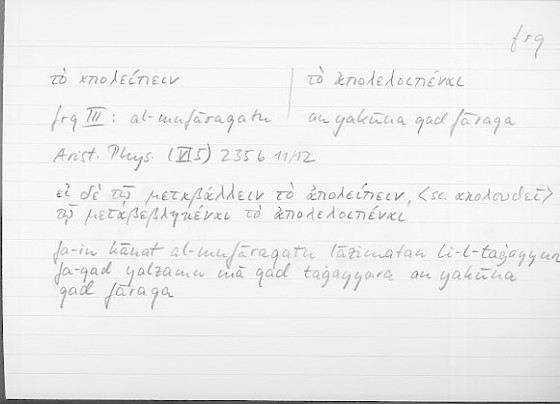 frq
τὸ ἀπολείπειν | τὸ ἀπολελοιπέναι
frq III : al-mufāraqatu an yakūna qad fāraqa
Arist. Phys. (VI 5) 235b 11/12
εἰ δὲ τῷ μεταβάλλειν τὸ ἀπολείπειν, <sc. ἀκολουθεῖ>
τῷ μεταβεβληκέναι τὸ ἀπολελοιπέναι
fa-in kānat al-mufāraqatu lāzimatan li-l-taġayyuri
fa-qad yalzamu mā qad taġayyara an yakūna
qad fāraqa